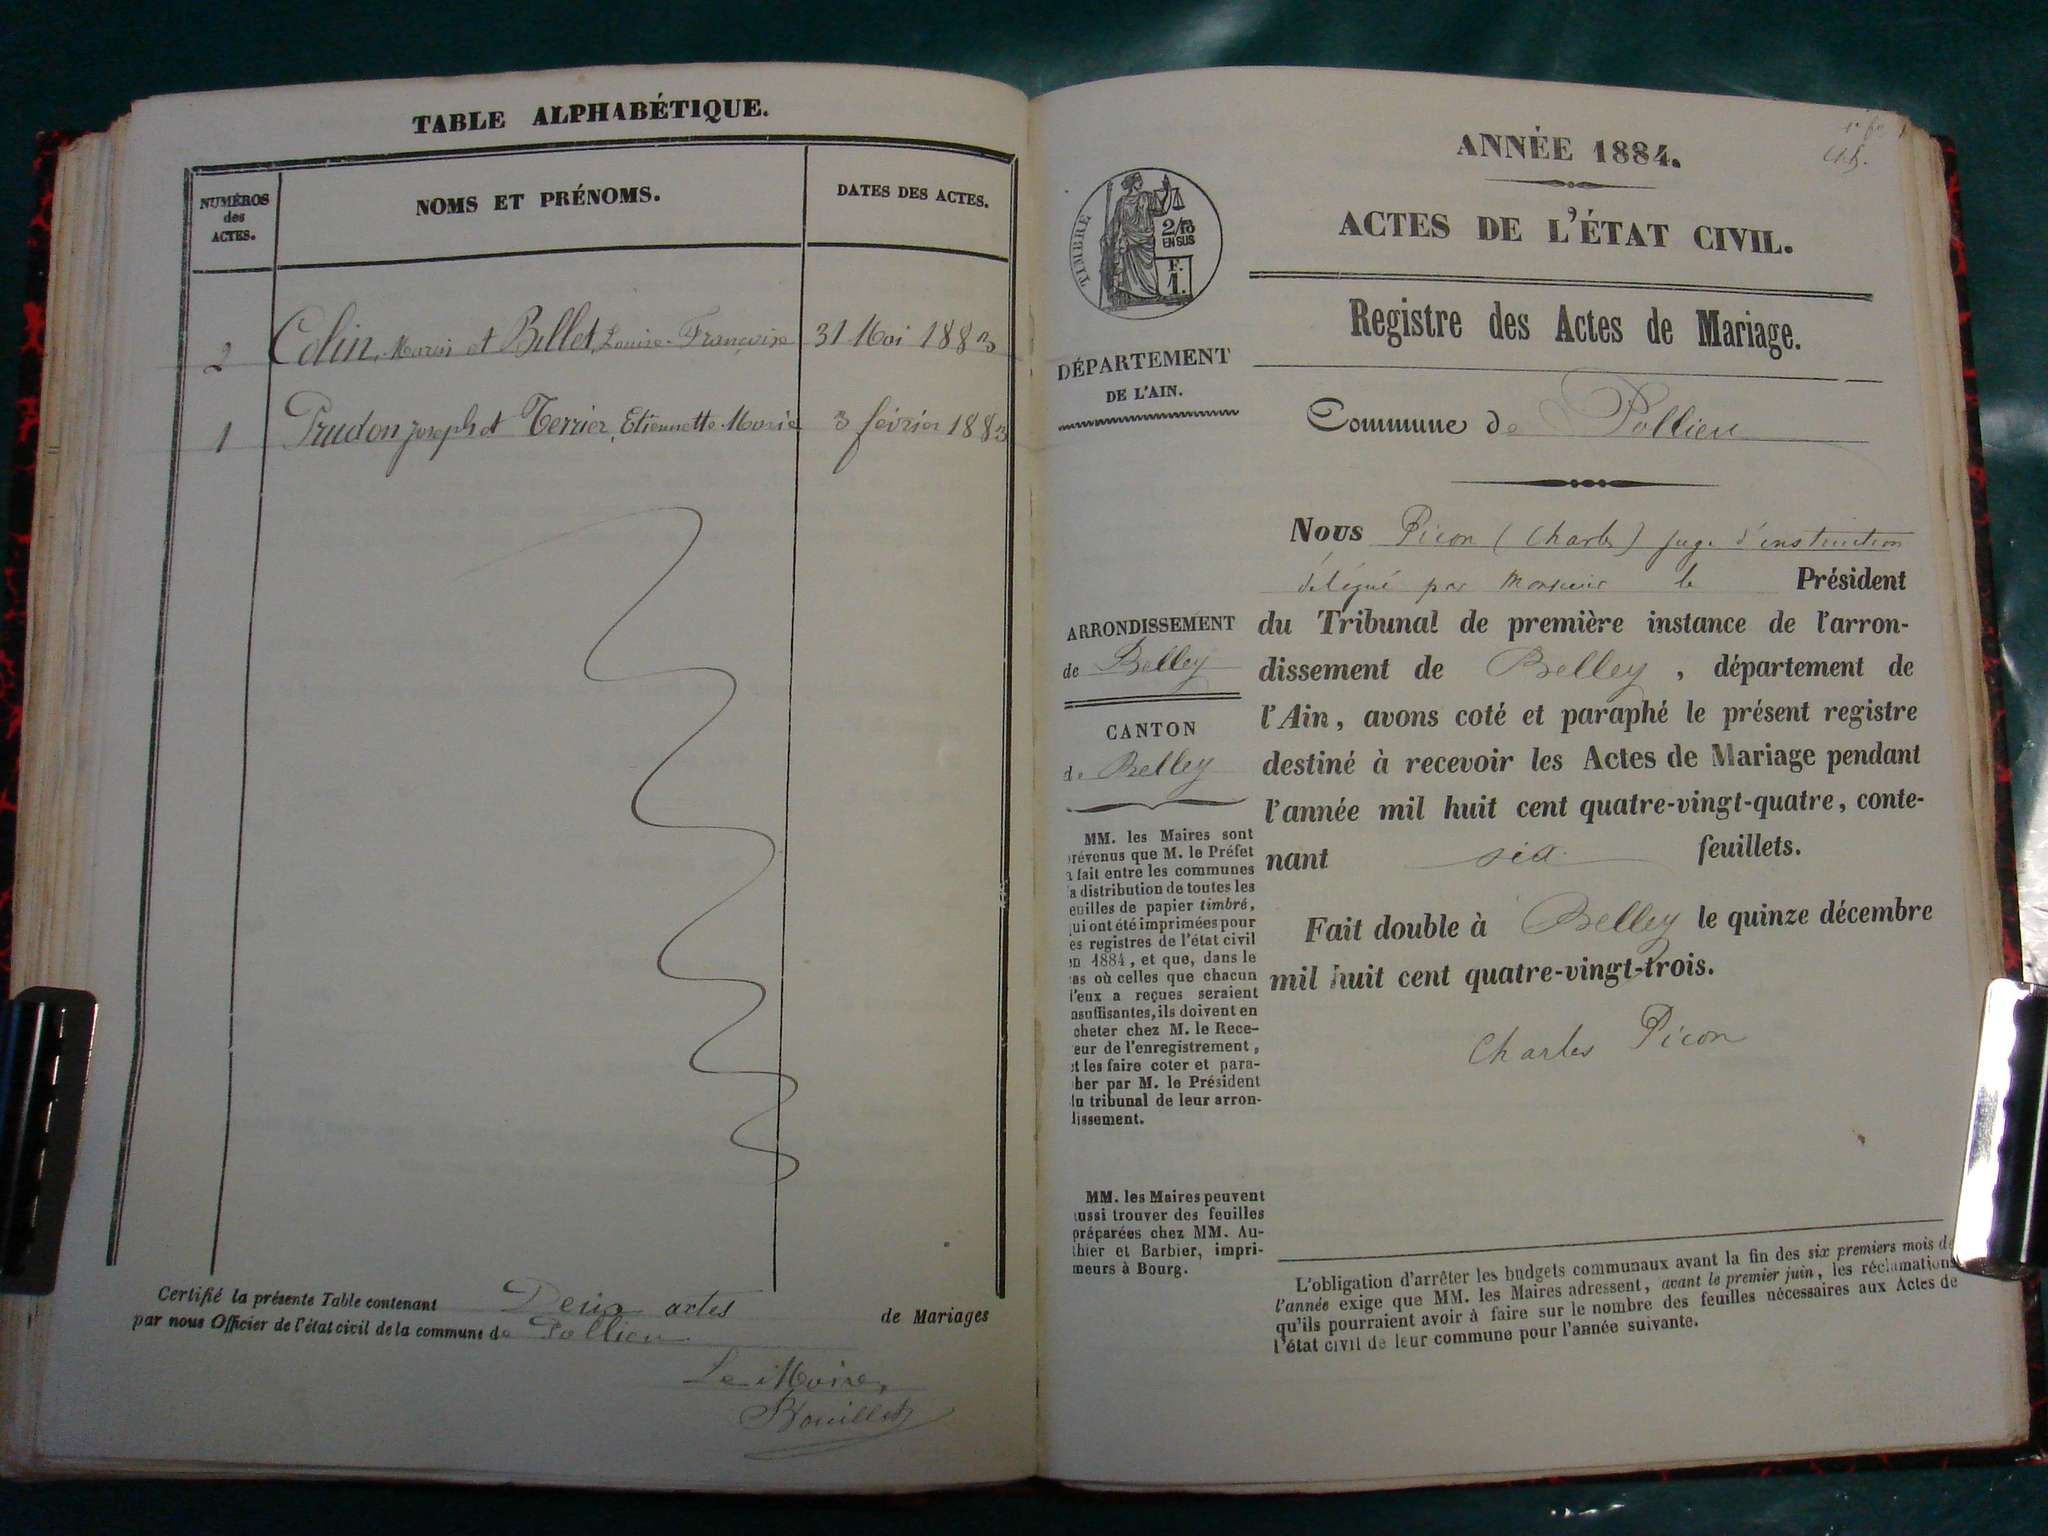 TABLE ALPHABÉTIQUE.
NUMÉROS
des
ACTES.
NOMS ET PRÉNOMS.
DATES DES ACTES.
2 Colin, Marin et Billet, Louise-Françoise 31 Mai 1883
1 Prudon Joseph et Terrier, Etiennette-Marie 3 février 1883
Certifié la présente Table contenant Deux actes de Mariages
par nous Officier de l'état civil de la commune de Pollieu
Le Maire,
ANNÉE 1884.
ACTES DE L'ÉTAT CIVIL.
TIMBRE
2/10
EN SUS
F.
1.
Registre des Actes de Mariage.
DÉPARTEMENT
DE L'AIN.
Commune de Pollieu
Nous Picon (Charles) juge d'instruction
délégué par Monsieur le Président
du Tribunal de première instance de l'arron-
dissement de Belley, département de
l'Ain, avons coté et paraphé le présent registre
destiné à recevoir les Actes de Mariage pendant
l'année mil huit cent quatre-vingt-quatre, conte-
nant six feuillets.
Fait double à Belley le quinze décembre
mil huit cent quatre-vingt-trois.
Charles Picon
ARRONDISSEMENT
de Belley
CANTON
de Belley
MM. les Maires sont
révenus que M. le Préfet
a fait entre les communes
a distribution de toutes les
euilles de papier timbré,
ui ont été imprimées pour
es registres de l'état civil
n 1884, et que, dans le
as où celles que chacun
l'eux a reçues seraient
nsuffisantes, ils doivent en
cheter chez M. le Rece-
eur de l'enregistrement,
t les faire coter et para-
her par M. le Président
lu tribunal de leur arron-
lissement.
MM. les Maires peuvent
ussi trouver des feuilles
préparées chez MM. Au-
thier et Barbier, impri-
meurs à Bourg.
L'obligation d'arrêter les budgets communaux avant la fin des six premiers mois de
l'année exige que MM. les Maires adressent, avant le premier juin, les réclamations
qu'ils pourraient avoir à faire sur le nombre des feuilles nécessaires aux Actes de
l'état civil de leur commune pour l'année suivante.